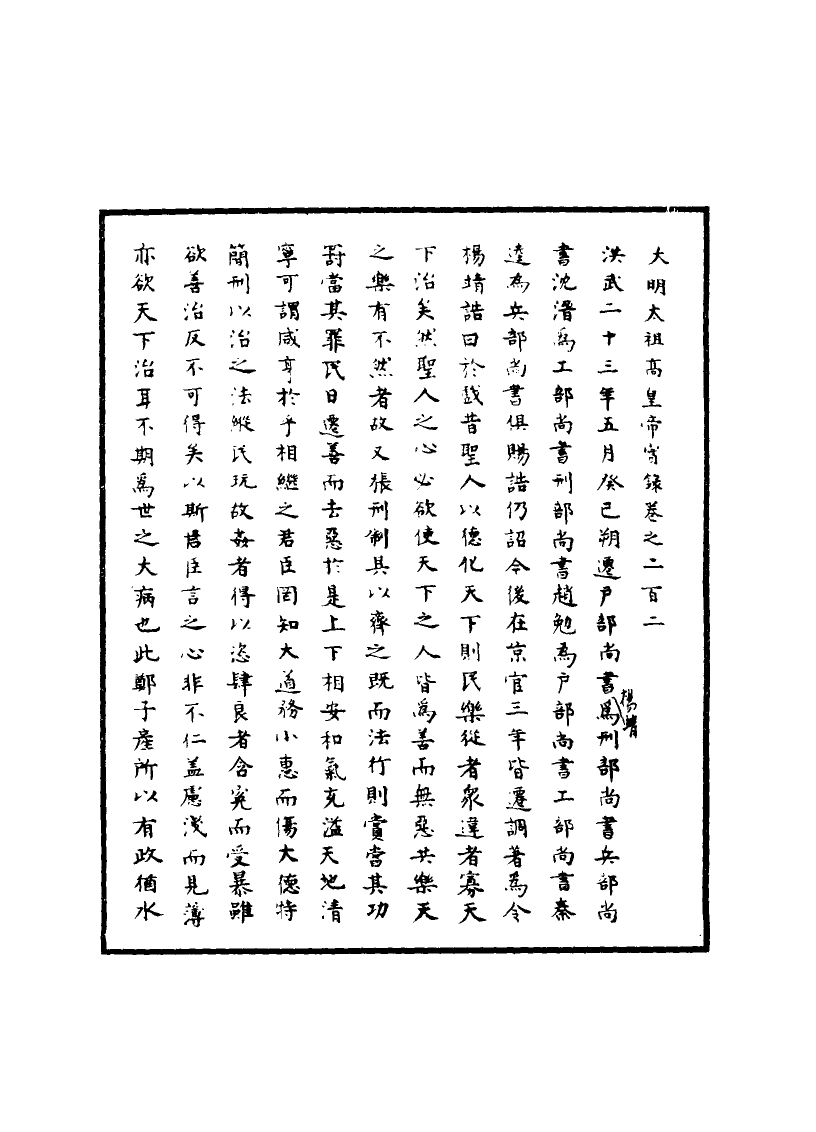 大明太祖髙皇帝寔錄卷之二百二
洪武二十三年五月癸巳朔遷戶部尚書楊靖為刑部尚書兵部尚
書沈溍為工部尚書刑部尚書趙勉為戶部尚書工部尚書秦
逵為兵部尚書俱賜誥仍詔今後在京官三年皆遷調著為令
楊靖誥曰於戲昔聖人以德化天下則民樂從者衆違者寡天
下治矣然聖人之心必欲使天下之人皆為善而無惡共樂天
之樂有不然者故又張刑制具以齊之既而法行則賞當其功
罸當其罪民日遷善而去惡於是上下相安和氣充溢天地清
寧可謂咸亨於乎相繼之君臣罔知大道務小惠而傷大德特
簡刑以治之法縱民玩故姦者得以恣肆良者含冤而受暴雖
欲善治反不可得矣以斯君臣言之心非不仁盖慮淺而見薄
亦欲天下治耳不期為世之大病也此鄭子產所以有政猶水